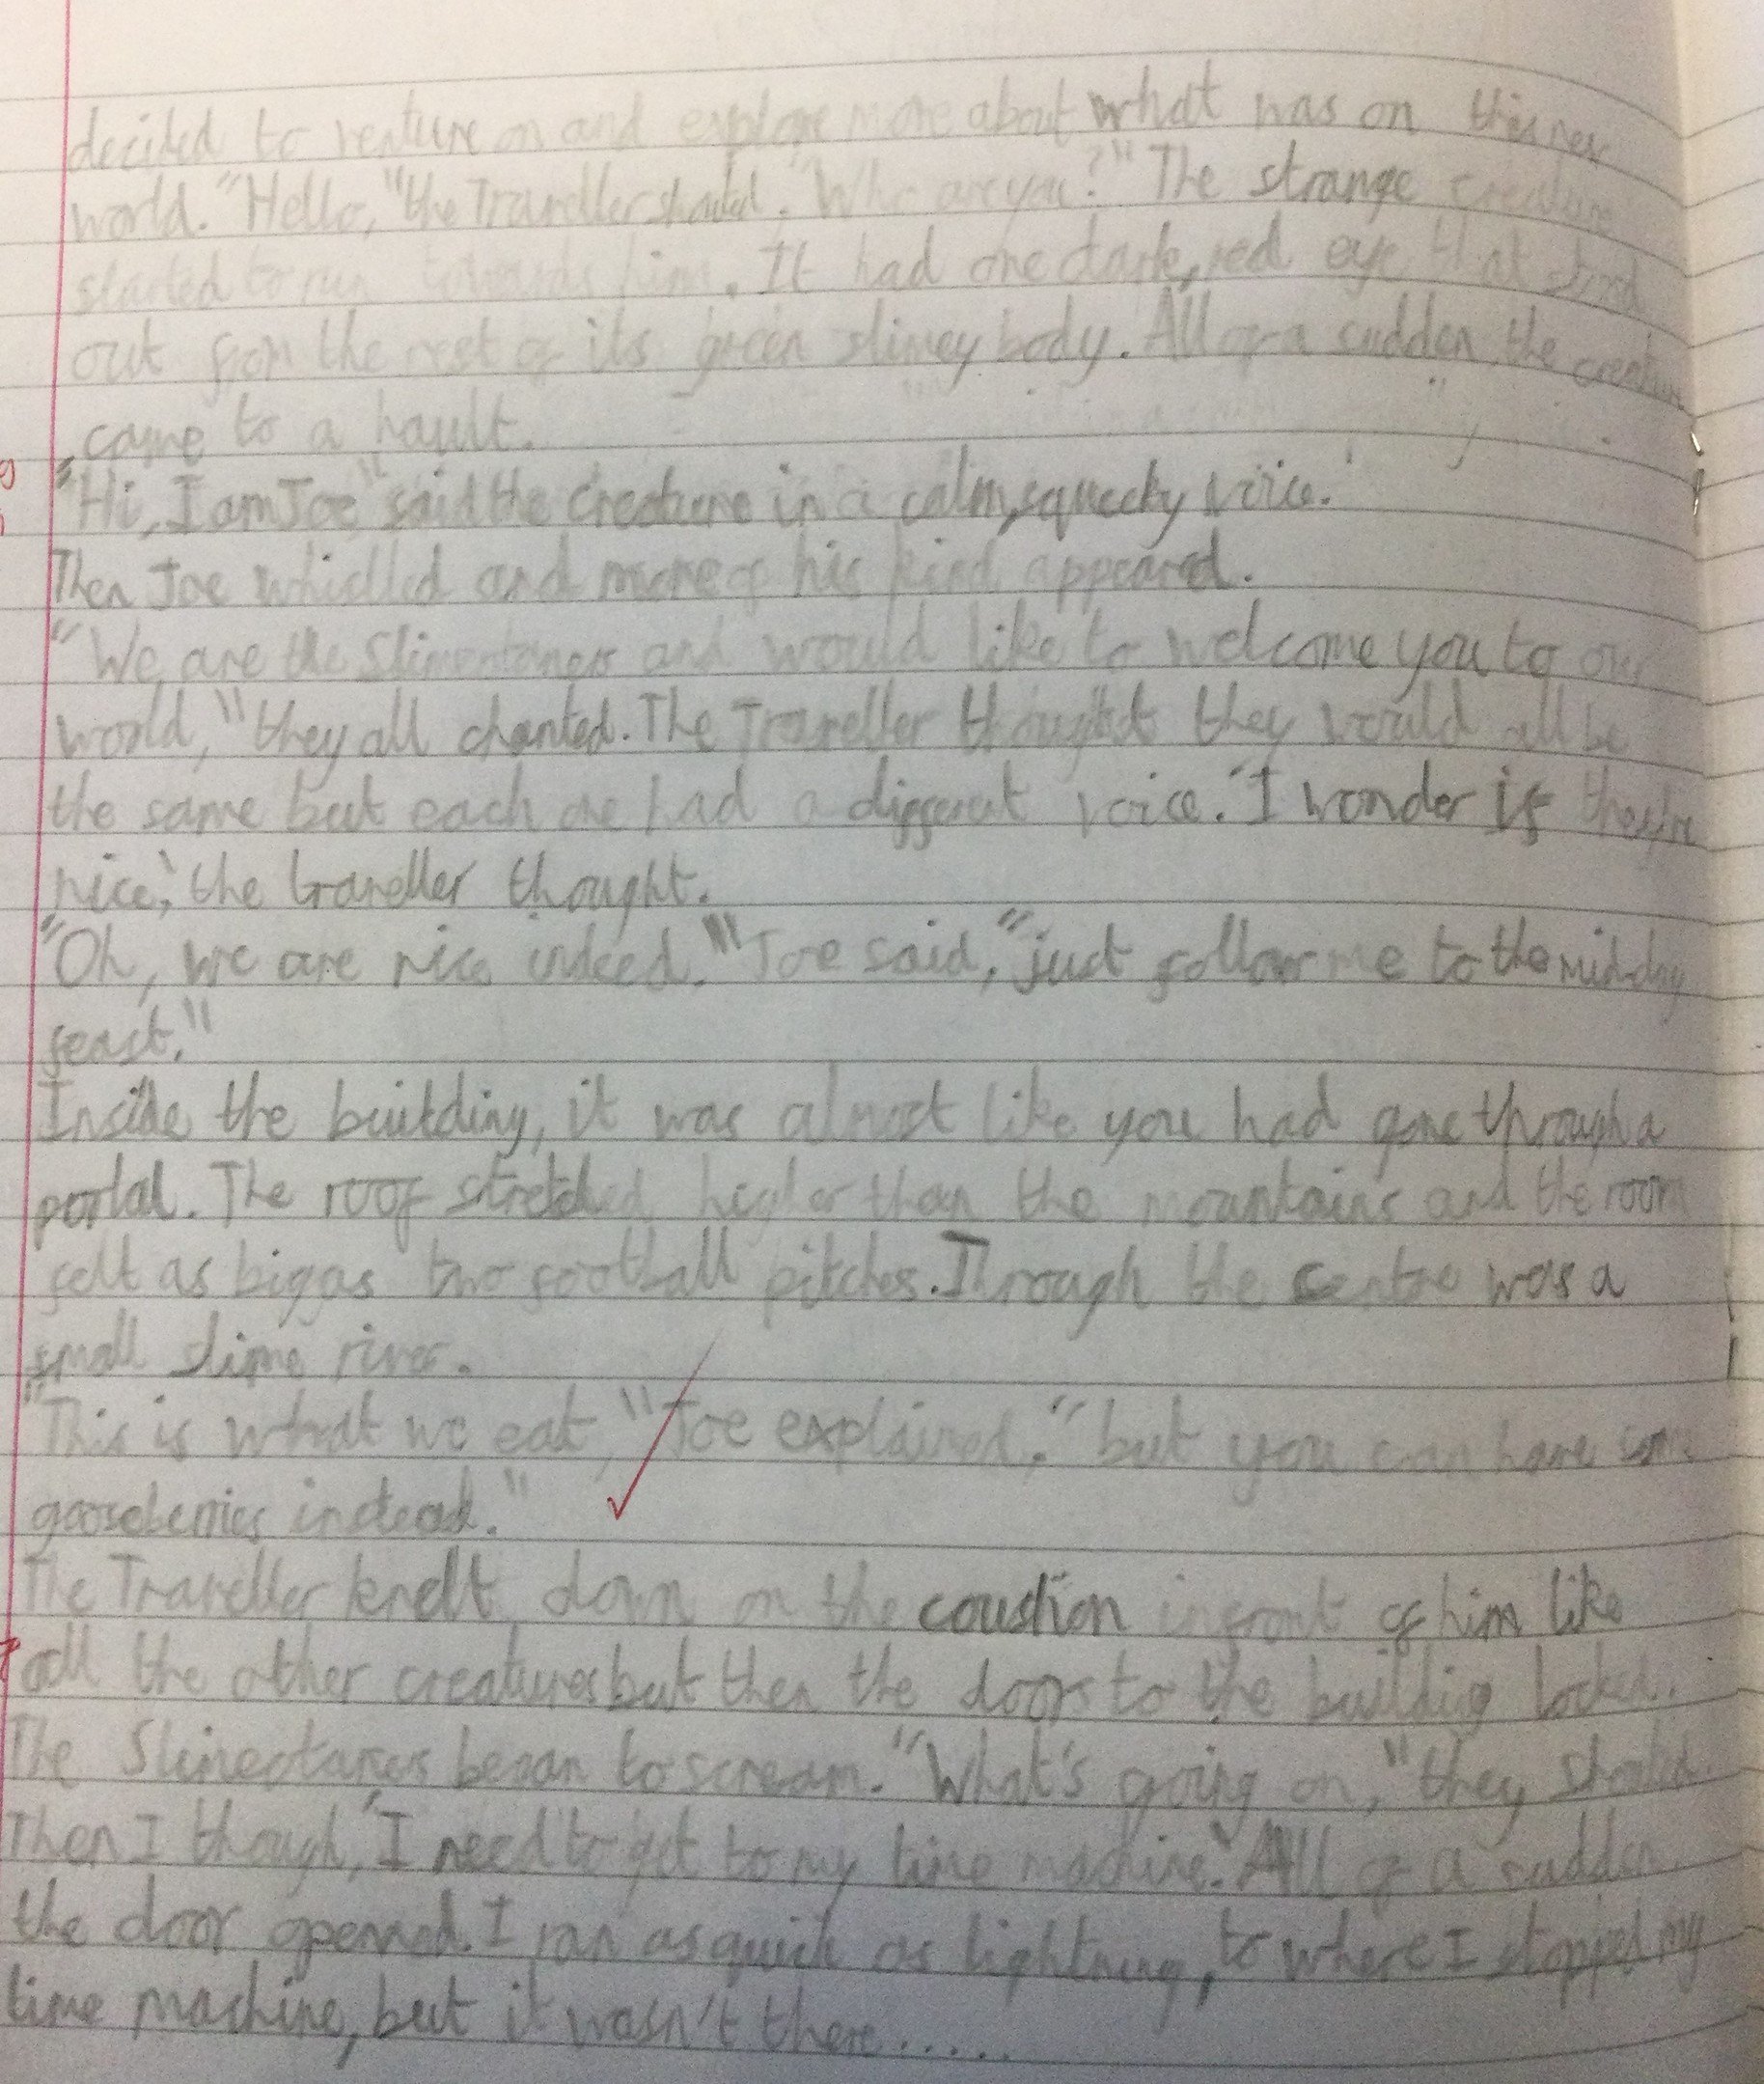 decided to venture on and explore more about what was on this new
world. "Hello," the Traveller shouted. "Who are you?" The strange creature
started to run towards him. It had one dark, red eye that stood
out from the rest of its green slimey body. All of a sudden, the creature
came to a hault.
"Hi, I am Joe" said the creature in a calm, squecky voice.
Then Joe whistled and more of his kind appeared.
"We are the and would like to welcome you to our
world," they all chanted. The Traveller thought they would all be
the same but each one had a different voice. 'I wonder if they're
nice,' the traveller thought.
"Oh, we are nice indeed." Joe said, "just follow me to the mid-day
feast."
Inside the building, it was almost like you had gone through a
portal. The roof stretched higher than the mountains and the room
felt as big as two football pitches. Through the centre was a
small slime river.
"This is what we eat," Joe explained, "but you can have some
gooseberries instead."
The Traveller knelt down on the coustion infront of him like
all the other creatures but then the doors to the building locked.
The began to scream. "What's going on," they shouted.
Then I though, 'I need to get to my time machine.' All of a sudden
the door openned. I ran as quick as lightning, to where I stopped my
time machine, but it wasn't there......